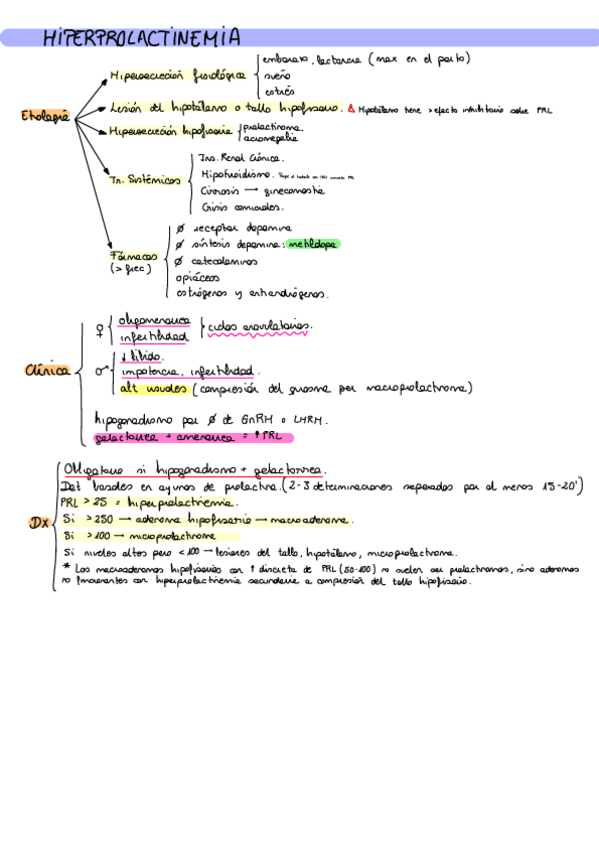 HIPERPROLACTINEMIA
Etiología
Hipersecreción fisiológica
embarazo, lactancia (max en el parto)
sueño
estrés
Lesión del hipotálamo o tallo hipofisario. Δ Hipotálamo tiene > efecto inhibitorio sobre PRL
Hipersecreción hipofisaria
prolactinoma
acromegalia
Tr. Sistémicos
Ins. Renal Crónica.
Hipotiroidismo.
Cirrosis → ginecomastia
Crisis comiciales.
Fármacos
(> frec)
Ø receptor dopamina
Ø síntesis dopamina: metildopa
Ø catecolaminas
opiáceos
estrógenos y antiandrógenos.
Clínica
♀
oligomenorrea
infertilidad
ciclos anovulatorios.
♂
↓ libido.
impotencia, infertilidad.
alt visuales (compresión del quiasma por macroprolactinoma)
hipogonadismo por Ø de GnRH o LHRH.
galactorrea + amenorrea = ↑ PRL
Dx
Obligatorio si hipogonadismo + galactorrea.
Det basales en ayunas de prolactina. (2-3 determinaciones separadas por al menos 15-20')
PRL > 25 = hiperprolactinemia.
Si > 250 → adenoma hipofisario → macroadenoma.
Si > 100 → microprolactinoma
Si niveles altos pero < 100 → lesiones del tallo, hipotálamo, microprolactinoma.
* Los macroadenomas hipofisarios con ↑ discreta de PRL (50-100) no suelen ser prolactinomas, sino adenomas
no funcionantes con hiperprolactinemia secundaria a compresión del tallo hipofisario.